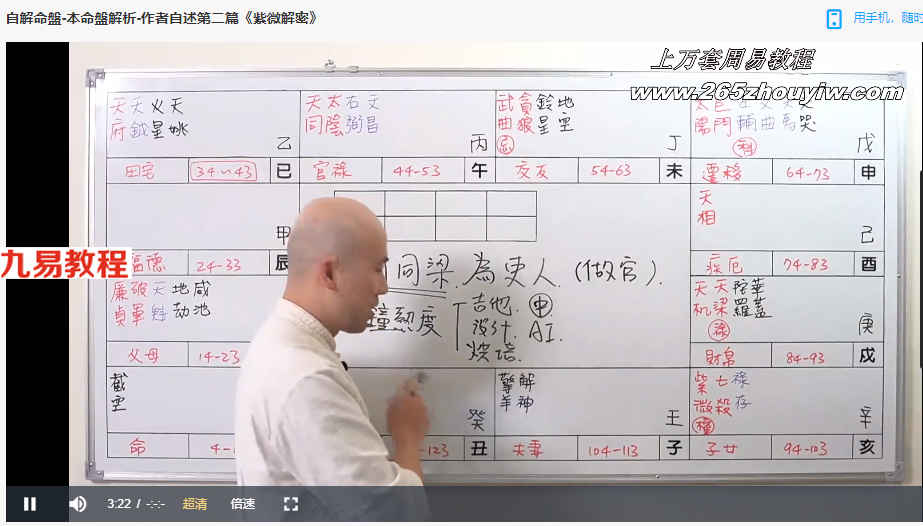 自解命盤-本命盤解析-作者自述第二篇《紫微解密》
用手机、随时
上万套周易教程
www.265zhouyiw.com
九易教程
天天火天
府鉞星姚
乙
田宅
34-43
巳
天太右文
同陰弼昌
丙
官祿
44-53
午
武貪鈴地
曲狼星空
忌
丁
交友
54-63
未
門輔曲馬哭
戊
遷移
64-73
申
甲
福德
24-33
辰
同梁為吏人(做官).
鐘熱度
吉他.申
設計.AI.
烘培.
天
相
己
疾厄
74-83
酉
廉破天地咸
貞軍魁劫池
父母
14-23
天天陀華
机梁羅蓋
祿
庚
財帛
84-93
戌
截
空
命
4-1
癸
-123
丑
擎解
羊神
壬
夫妻
104-113
子
紫七祿
微殺存
權
辛
子女
94-103
亥
3:22 / -:-:-
超清
倍速